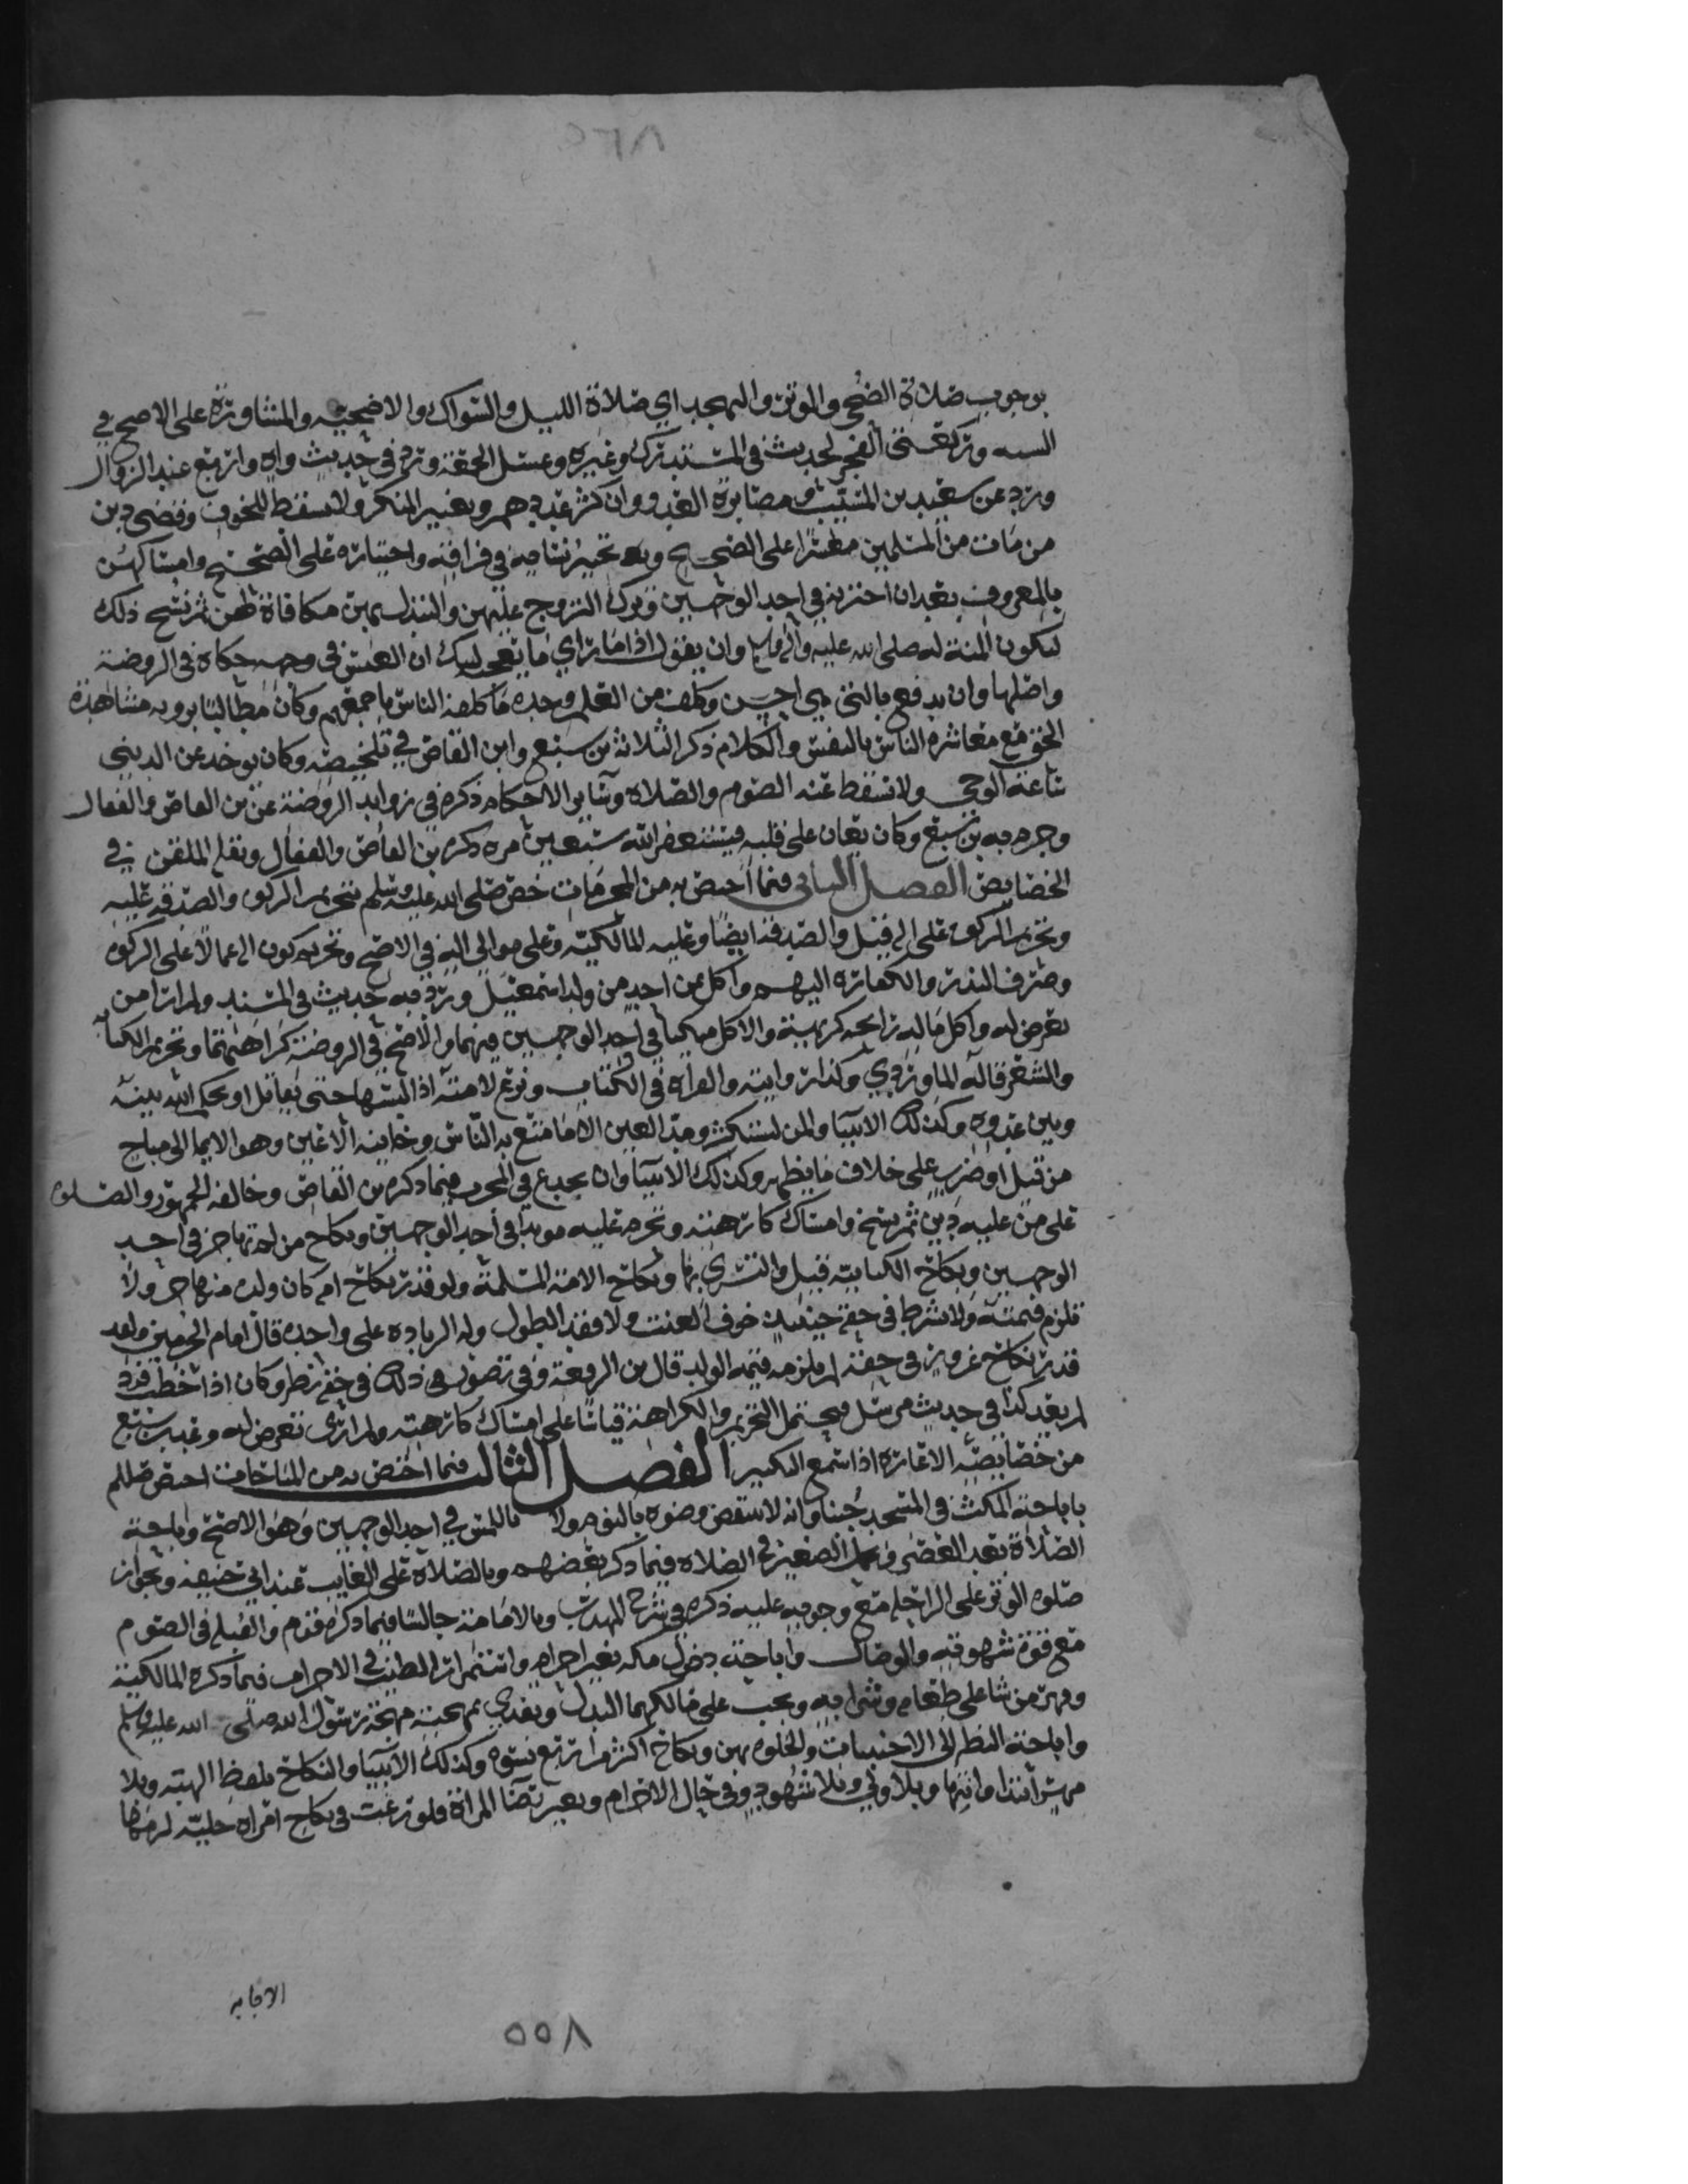 ٨٣٥
بوجوب صلاة الضحى والوتر والتهجد اي صلاة الليل والسواك والاضحيه والمشاورة على الاصح في
السته وركعتي الفجر لحديث في المستدرك وغيره وغسل الجمعة ورد في حديث واه واربع عند الزوال
ورد عن سعيد بن المسيب ومصابرة العدو وان كثر عددهم وبغيير المنكر ولا يسقط للخوف وقضى دين
من مات من المسلمين معسرا على الصحيح وبه تخيير نسايه في فراقه واختياره على الصحيح وامساكهن
بالمعروف بعد ان اخترنه في احد الوجهين وترك التزوج عليهن والتبدل بهن مكافاة لهن ثم نسخ ذلك
لتكون المنة له صلى الله عليه واله وسلم وان يقول اذا ما راي ما يعجب لبيك ان العيش في وجه حكاه في الروضة
واصلها وان يدفع بالتي هي احسن وكلف من العلم وحده ما كلفه الناس باجمعهم وكان مطالبا برويه مشاهدة
الحق مع معاشره الناس بالنفس والكلام ذكر الثلاثة بن سبع وابن القاص في تلخيصه وكان يوخذ عن الدنيى
ساعة الوحى ولا تسقط عنه الصوم والصلاه وساير الاحكام ذكره في زوايد الروضة عن بن القاص والقفال
وجزم به بن سبع وكان يغان على قلبه فيستغفر الله سبعين مره ذكره بن القاص والقفال ونقله الملقن في
الخصايص الفصل الثاني فيما اختص به من المحرمات خص صلى الله عليه وسلم بتحريم الزكوه والصدقه عليه
وتحريم الزكوه على اله قيل والصدقه ايضا وعليه المالكيه وعلى موالي اله في الاصح وتحريم كون اله عمالا على الزكوه
وصرف النذر والكفاره اليهم واكل ثمن احد من ولد اسمعيل ورد فيه حديث في المسند ولم ار من
تعرض له واكل ما له رايحه كريهة والاكل متكيا في احد الوجهين فيهما والاصح في الروضة كراهتهما وتحريم الكتابه
والشعر قاله الماوردي وكذا روايته والقراه في الكتاب ونزع لامته اذا لبسها حتى يقاتل او يحكم الله بينه
وبين عدوه وكذلك الانبيا والمن ليستكثر ومد العين الى ما متع به الناس وخاينة الاعين وهو الايما الى مباح
من قتل او ضرب على خلاف ما يظهر وكذلك الانبيا وان يخدع في الحرب فيما ذكره بن القاص وخالفه الجمهور والصلوه
على من عليه دين ثم نسخ وامساك كارهته وتحرم عليه موبدا في احد الوجهين ونكاح من لم تهاجر في احد
الوجهين ونكاح الكتابيه قيل والتسري بها ونكاح الامة المسلمة ولو قدر نكاح امة كان ولده منها حر ولا
تلزم قيمته ولا يشرط في حقه حينئذ خوف العنت ولا فقد الطول وله الزياده على واحده قال امام الحرمين ولو
قدر نكاح غرور في حقه لم يلزمه قيمه الولد قال بن الرفعة وفي تصور هي ذلك في حقه نظر وكان اذا خطب فرد
لم يعد كذا في حديث مرسل فيحتمل التحريم والكراهة قياسا على امساك كارهته ولم ار من تعرض له وعد بن سبع
من خصايصه الاغاره اذا سمع التكبير الفصل الثالث فيما اختص به من المباحات اختص صللم
باباحة المكث في المسجد جنبا وانه لا ينتقض وضوه بالنوم ولا باللمس في احد الوجهين وهو الاصح واباحة
الصلاة بعد العصر وبحمل الصغيره في الصلاه فيما ذكر بعضهم وبالصلاة على الغايب عند ابي حنيفه وبجواز
صلوه الوتر على الراحله مع وجوبه عليه ذكره في شرح المهذب وبالامامة جالسا فيما ذكره قوم والقبله في الصوم
مع قوة شهوته والوصال واباحة دخول مكه بغير احرام واستمرار الطيب في الاحرام فيما ذكره المالكية
وقهر من شا على طعامه وشرابه ويجب على مالكهما البذل ويفدي بمهجته مهجة رسول الله صلى الله عليه وسلم
واباحة النظر الى الاجنبيات والخلوه بهن ونكاح اكثر من اربع نسوه وكذلك الانبيا والنكاح بلفظ الهبه وبلا
مهر ابتدا وانتها وبلا ولي وبلا شهود وفي حال الاحرام وبغير رضا المراة فلو رغب في نكاح امراه خليه لزمها
الاجابه
٥٥٨